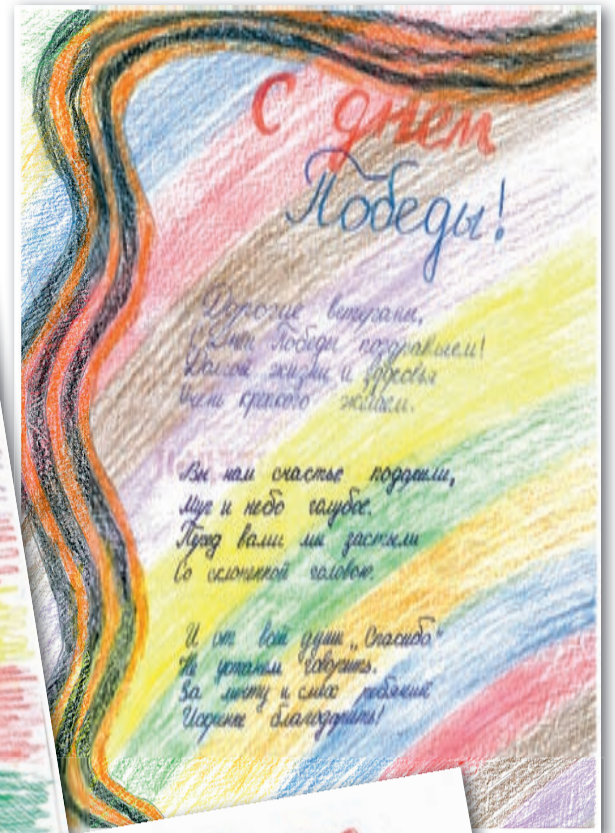 С днем
Победы!
Дорогие ветераны,
С Днем Победы поздравляем!
Долгой жизни и здоровья
Очень крепкого желаем.
Вы нам счастье подарили,
Мир и небо голубое.
Перед вами мы застыли
Со склонённой головою.
И от всей души „Спасибо"
Не устанем говорить.
За мечту и смех ребячий
Искренне благодарить!